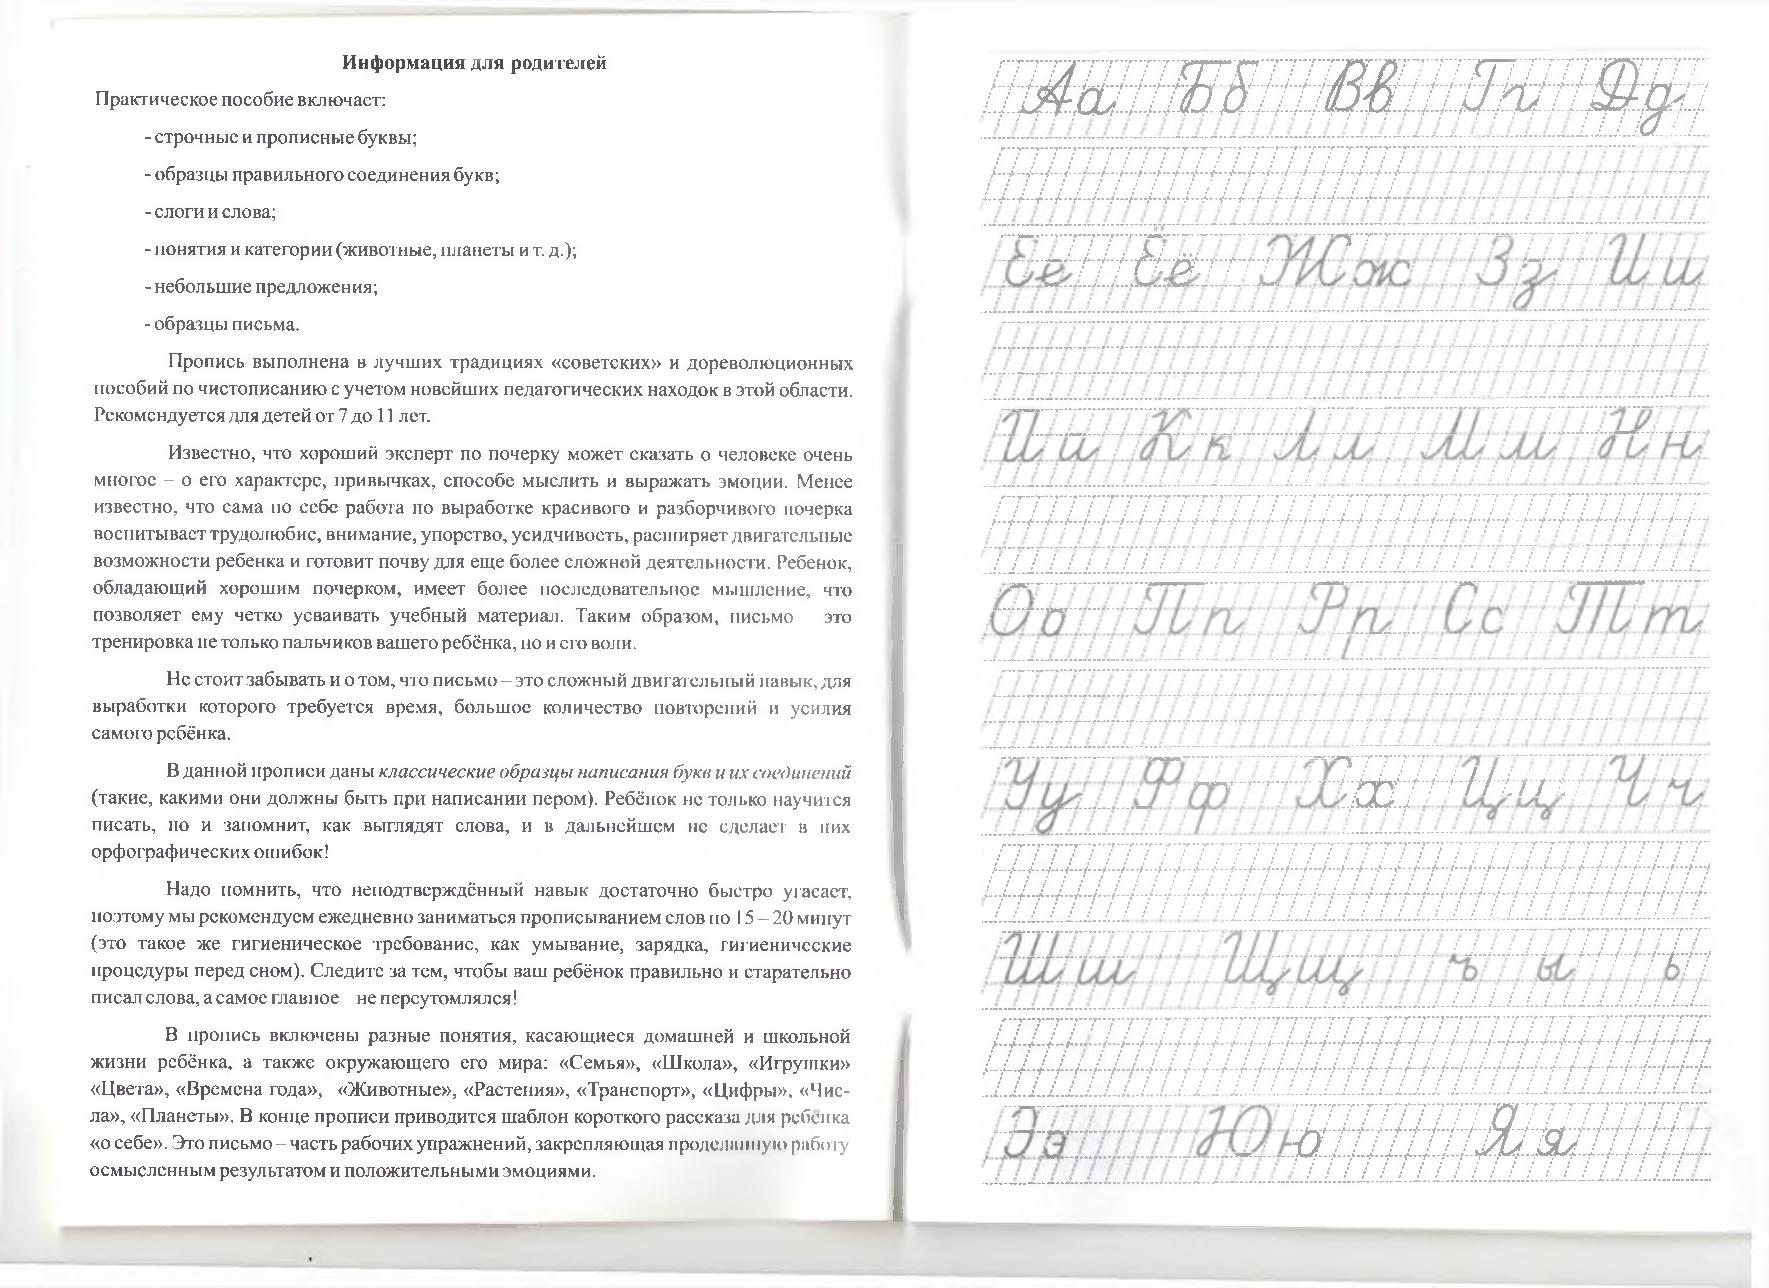 Информация для родителей
Практическое пособие включает:
- строчные и прописные буквы;
- образцы правильного соединения букв;
- слоги и слова;
- понятия и категории (животные, планеты и т. д.);
- небольшие предложения;
- образцы письма.
Пропись выполнена в лучших традициях «советских» и дореволюционных
пособий по чистописанию с учетом новейших педагогических находок в этой области.
Рекомендуется для детей от 7 до 11 лет.
Известно, что хороший эксперт по почерку может сказать о человеке очень
многое – о его характере, привычках, способе мыслить и выражать эмоции. Менее
известно, что сама по себе работа по выработке красивого и разборчивого почерка
воспитывает трудолюбие, внимание, упорство, усидчивость, расширяет двигательные
возможности ребенка и готовит почву для еще более сложной деятельности. Ребенок,
обладающий хорошим почерком, имеет более последовательное мышление, что
позволяет ему четко усваивать учебный материал. Таким образом, письмо это
тренировка не только пальчиков вашего ребёнка, но и его воли.
Не стоит забывать и о том, что письмо – это сложный двигательный навык, для
выработки которого требуется время, большое количество повторений и усилия
самого ребёнка.
В данной прописи даны классические образцы написания букв и их соединений
(такие, какими они должны быть при написании пером). Ребёнок не только научится
писать, но и запомнит, как выглядят слова, и в дальнейшем не сделает в них
орфографических ошибок!
Надо помнить, что неподтверждённый навык достаточно быстро угасает,
поэтому мы рекомендуем ежедневно заниматься прописыванием слов по 15 – 20 минут
(это такое же гигиеническое требование, как умывание, зарядка, гигиенические
процедуры перед сном). Следите за тем, чтобы ваш ребёнок правильно и старательно
писал слова, а самое главное не переутомлялся!
В пропись включены разные понятия, касающиеся домашней и школьной
жизни ребёнка, а также окружающего его мира: «Семья», «Школа», «Игрушки»
«Цвета», «Времена года», «Животные», «Растения», «Транспорт», «Цифры», «Чис-
ла», «Планеты». В конце прописи приводится шаблон короткого рассказа для ребёнка
«о себе». Это письмо – часть рабочих упражнений, закрепляющая проделанную работу
осмысленным результатом и положительными эмоциями.
Аа Бб Вв Гг Дд
Ее Ёё Жж Зз Ии
Йй Кк Лл Мм Нн
Оо Пп Рр Сс Тт
Уу Фф Хх Цц Чч
Шш Щщ ъ ы ь
Ээ Юю Яя